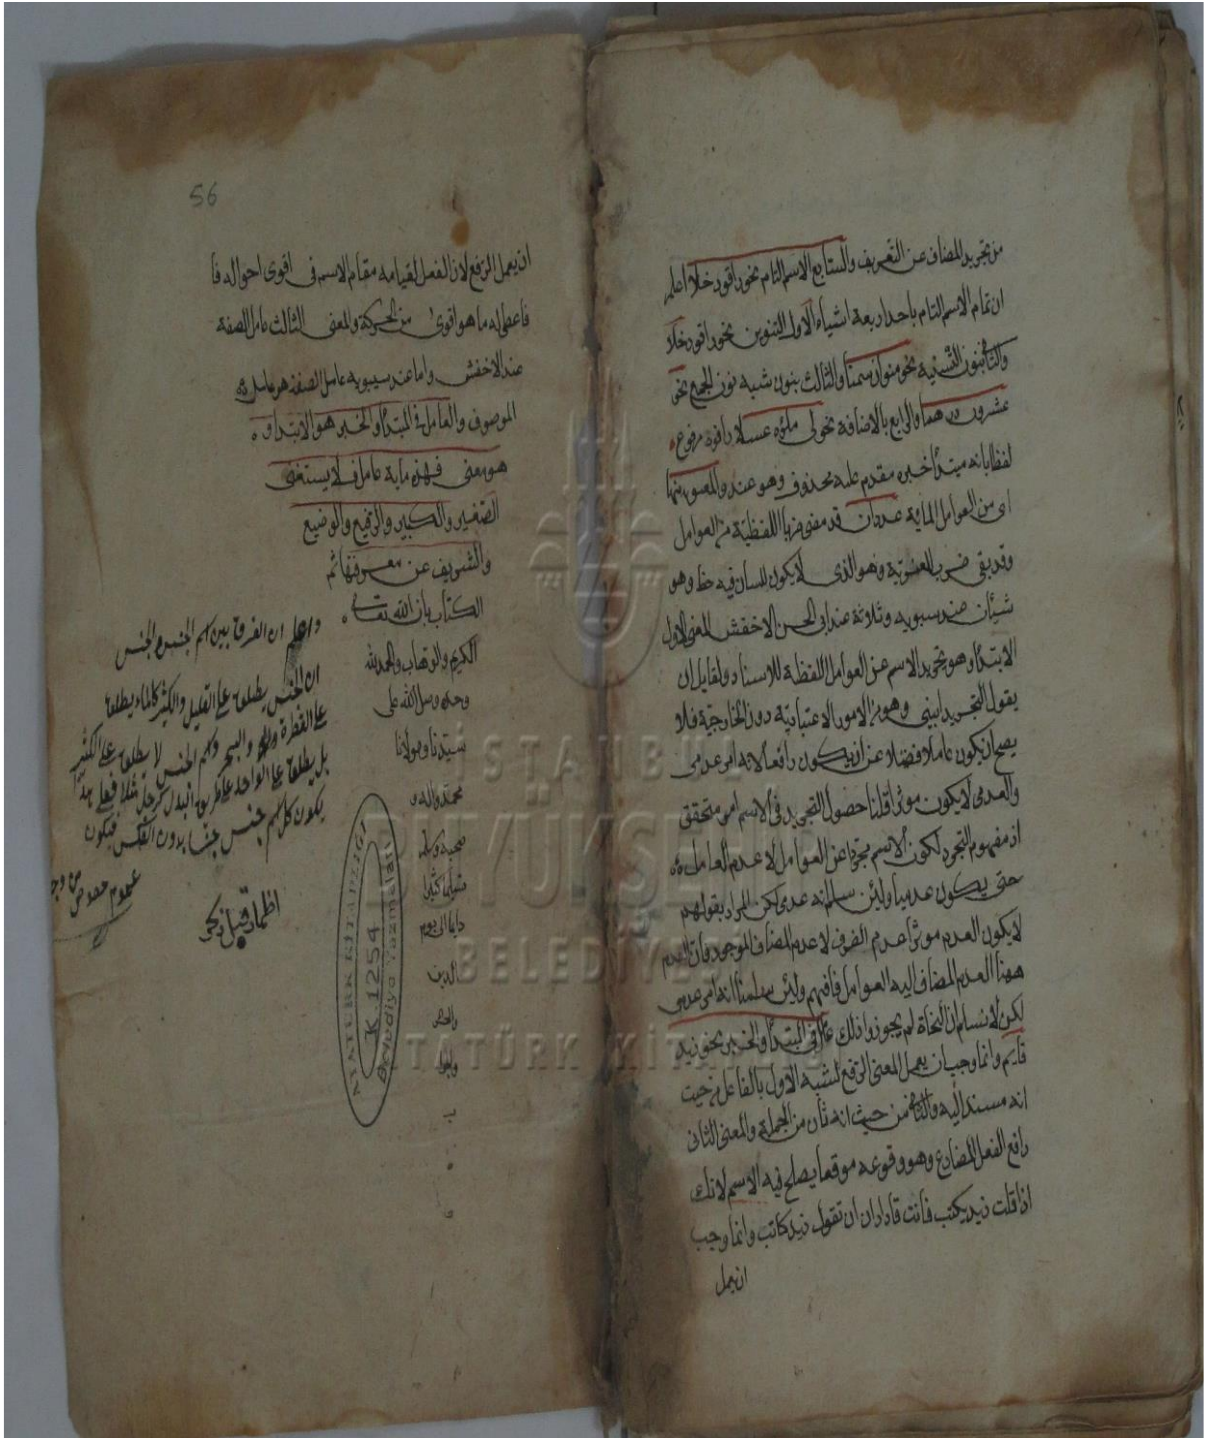 من تجريد المضاف عن التعريف والسابع الاسم التام نحو راقود خلا اعلم
ان تمام الاسم التام باحد اربعة اشياء الاول التنوين نحو راقود خلا
والثانى بنون التثنيه نحو منوان سمنا والثالث بنون شبيه نون الجمع نحو
عشرون درهما والرابع بالاضافة نحو لى ملؤه عسلا
لفظا بانه مبتدأ خبره مقدم عليه محذوف وهو عند والمعنوية منها
اى من العوامل المائية عددان قد مضى ضربا اللفظية من العوامل
وقد بقى ضرب المعنوية وهو الذى لا يكون للسان فيه حظ وهو
شيئان عند سيبويه وثلاثة عند ابى الحسن الاخفش المعنى الاول
الابتدأ وهو تجريد الاسم عن العوامل اللفظة للاسناد ولقايل ان
يقول التجريد وهو من الامور الاعتبارية دون الخارجية فلا
يصح ان يكون عاملا فضلا عن ان يكون رافعا لانه امر عدمى
والعدمى لا يكون موثرا قلنا حصول التجريد فى الاسم امر متحقق
اذ مفهوم التجرد لكون الاسم مجردا عن العوامل لا عدم العامل
حتى يكون عدميا ولئن سلم انه عدمى لكن المراد بقولهم
لا يكون العدم موثرا عدم الصرف لا عدم المضاف الموجود فان العدم
ههنا العدم المضاف اليه العوامل فافهم ولئن سلمنا انه امر عدمى
لكن لا نسلم ان النحاة لم يجوزوا ذلك فى المبتدأ والخبر نحو زيد
قايم وانما وجب ان يعمل المعنى الرفع لشبه الاول بالفاعل من حيث
انه مسند اليه والثانى من حيث انه ثان من الجملة والمعنى الثانى
رافع الفعل المضارع وهو وقوعه موقعا يصلح فيه الاسم لانك
اذا قلت زيد يكتب فانت ان تقول زيد كاتب وانما وجب
ان يعمل
56
ان يعمل الرفع لان الفعل لقيامه مقام الاسم فى اقوى احواله فا
فاعطى له ما هو اقوى من الحركة والمعنى الثالث عامل الصفة
عند الاخفش واما عند سيبويه عامل الصفة هو عامل
الموصوف والعامل فى المبتدأ والخبر هو الابتداء
هو معنى فهذه ماية عامل فلا يستغنى
الصغير والكبير والرفيع والوضيع
والشريف عن معرفتها تم
الكتاب باذن الله تعالى
الكريم والوهاب والحمد لله
وحده وصلى الله على
سيدنا ومولانا
محمد واله و
صحبه وسلم
تسليما كثيرا
دايما الى يوم
الدين
واعلم ان الفرق بين اسم الجنس والجنس
ان الجنس يطلق على القليل والكثير كالماء يطلق
على القطرة والبحر واسم الجنس لا يطلق على الكثير
بل يطلق على الواحد على طريق البدل كرجل مثلا فعلى هذا
يكون كل اسم جنس جنسا بدون العكس فيكون
عموم خصوص من وجه
ATATÜRK KİTAPLIĞI
K.1254
Belediye Yazmaları
İSTANBUL
BÜYÜKŞEHİR
BELEDİYESİ
ATATÜRK KİTAPLIĞI